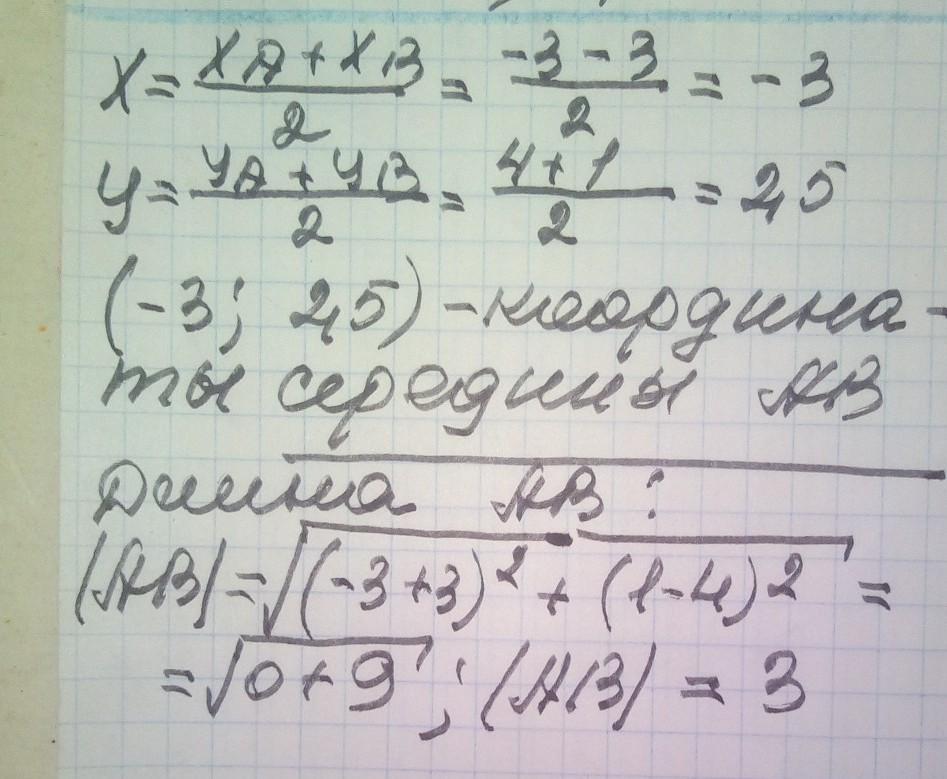 X = (XA + XB)/2 = (-3 - 3)/2 = -3
y = (yA + yB)/2 = (4 + 1)/2 = 2,5
(-3; 2,5) - координа-
ты середины AB
Длина AB:
|AB| = √((-3+3)² + (1-4)²) =
= √(0+9); |AB| = 3